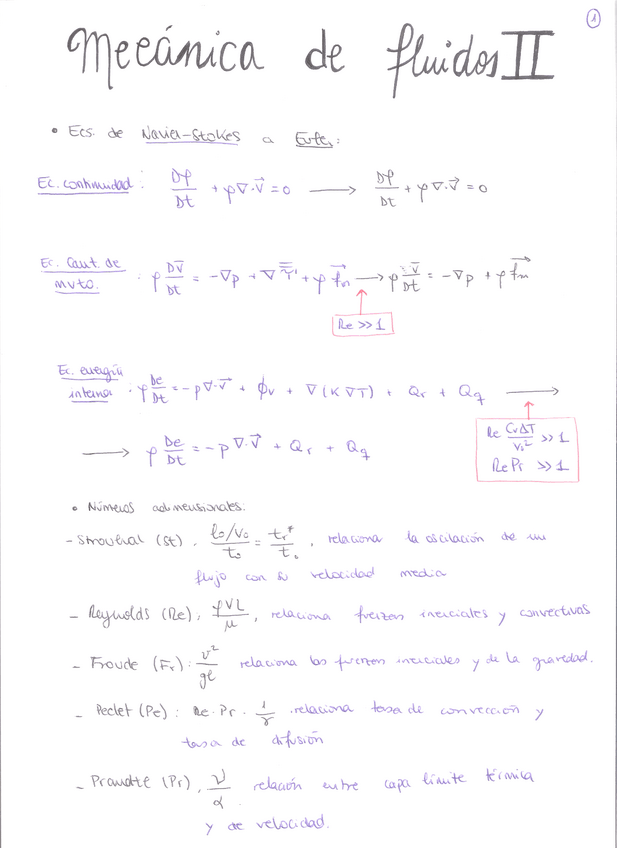 1
Mecánica de fluidos II
• Ecs. de Navier-Stokes a Euler:
Ec. continuidad: Dρ/Dt + ρ∇·v⃗ = 0 ⟶ Dρ/Dt + ρ∇·v⃗ = 0
Ec. Cant. de mvto.: ρ Dv̄/Dt = -∇p + ∇τ̿' + ρf⃗m ⟶ ρ Dv̄/Dt = -∇p + ρf⃗m
Re >> 1
Ec. energía interna: ρ De/Dt = -p∇·v⃗ + ϕv + ∇(K∇T) + Qr + Qq ⟶
Re CvΔT/Vs² >> 1
RePr >> 1
⟶ ρ De/Dt = -p∇·v⃗ + Qr + Qq
• Números adimensionales:
- Strouhal (St), (lo/Vo)/to = tr*/to, relaciona la oscilación de un
flujo con su velocidad media
- Reynolds (Re); ρVL/μ, relaciona fuerzas inerciales y convectivas
- Froude (Fr): v²/gl relaciona las fuerzas inerciales y de la gravedad.
- Peclet (Pe): Re·Pr·1/γ relaciona tasa de convección y
tasa de difusión
- Prandtl (Pr), ν/α relación entre capa límite térmica
y de velocidad.